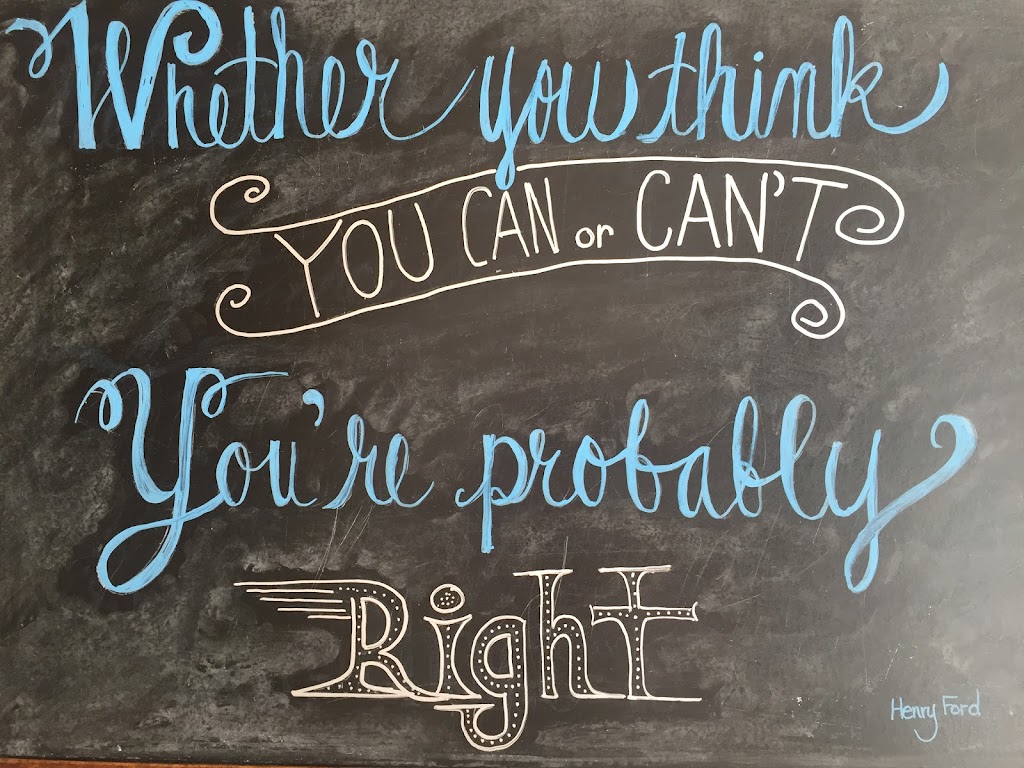 Whether you think
YOU CAN or CAN'T
You're probably
Right
Henry Ford